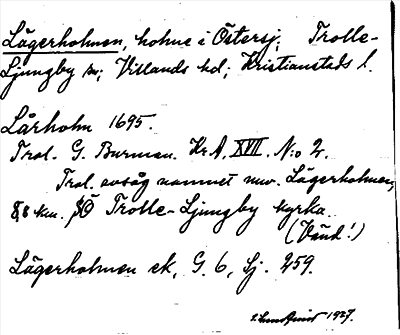 Lägerholmen, holme i Östersj. Trolle-
Ljungby sn; Villands hd; Kristianstads l.
Lårholm 1695.
Trol. G. Burman. Kr. A. XVII, N:o 2.
Trol. avsåg namnet nuv. Lägerholmen,
8,8 km. SO Trolle-Ljungby kyrka.
(Vänd!)
Lägerholmen ek, G. 6, Sj. 259.
1927.